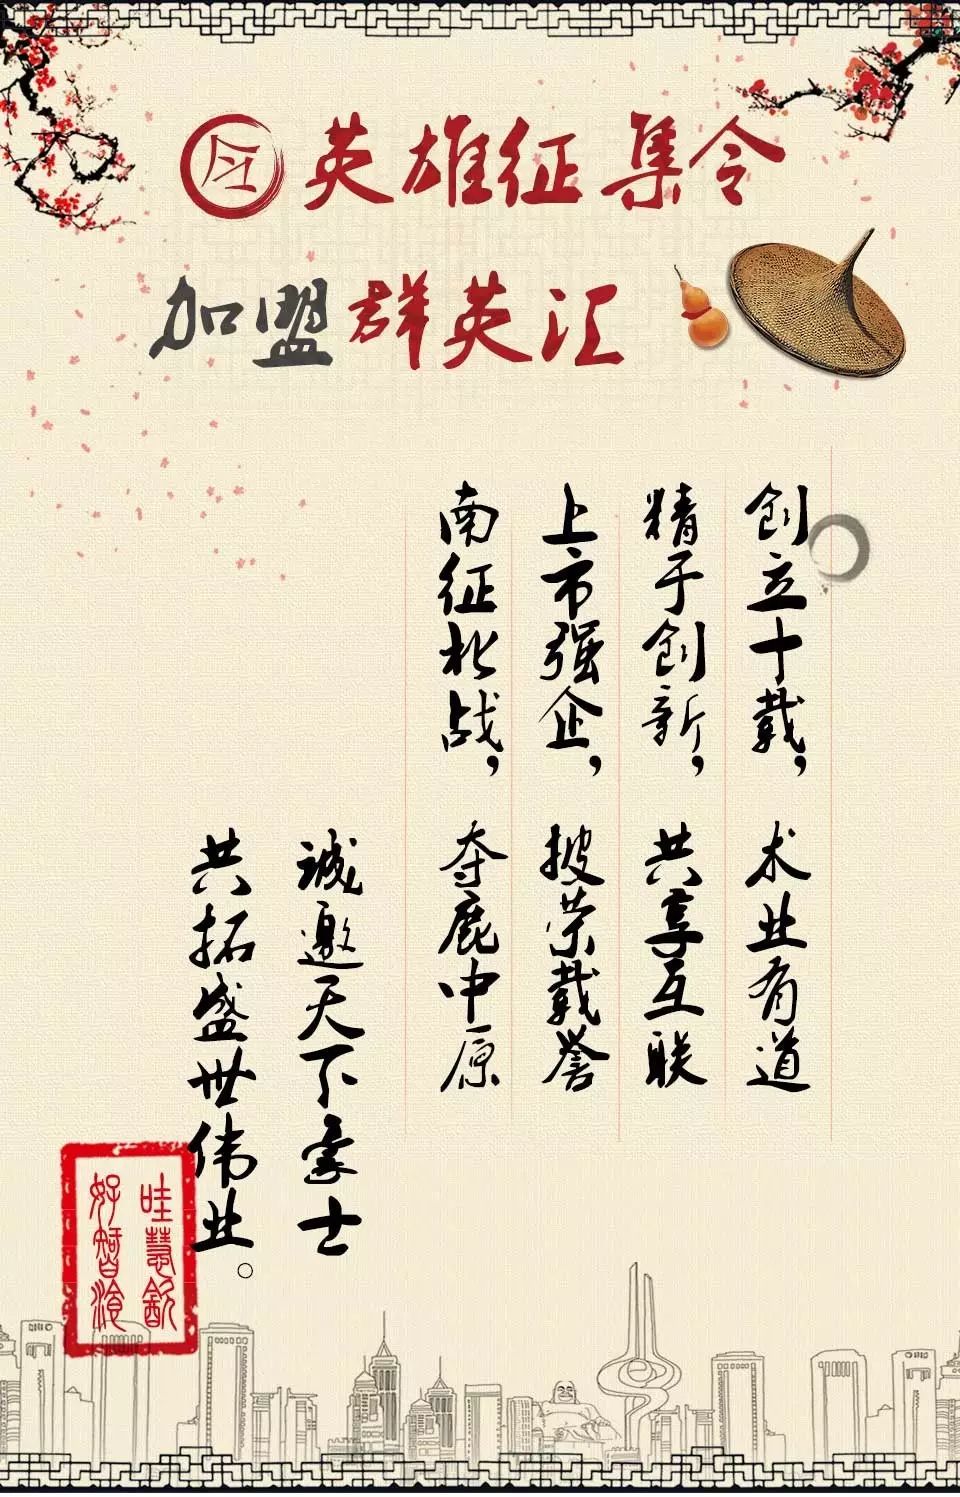 令英雄征集令
加盟群英汇
创立十载，术业有道
精于创新，共享互联
上市强企，披荣载誉
南征北战，夺鹿中原
诚邀天下豪士
共拓盛世伟业。